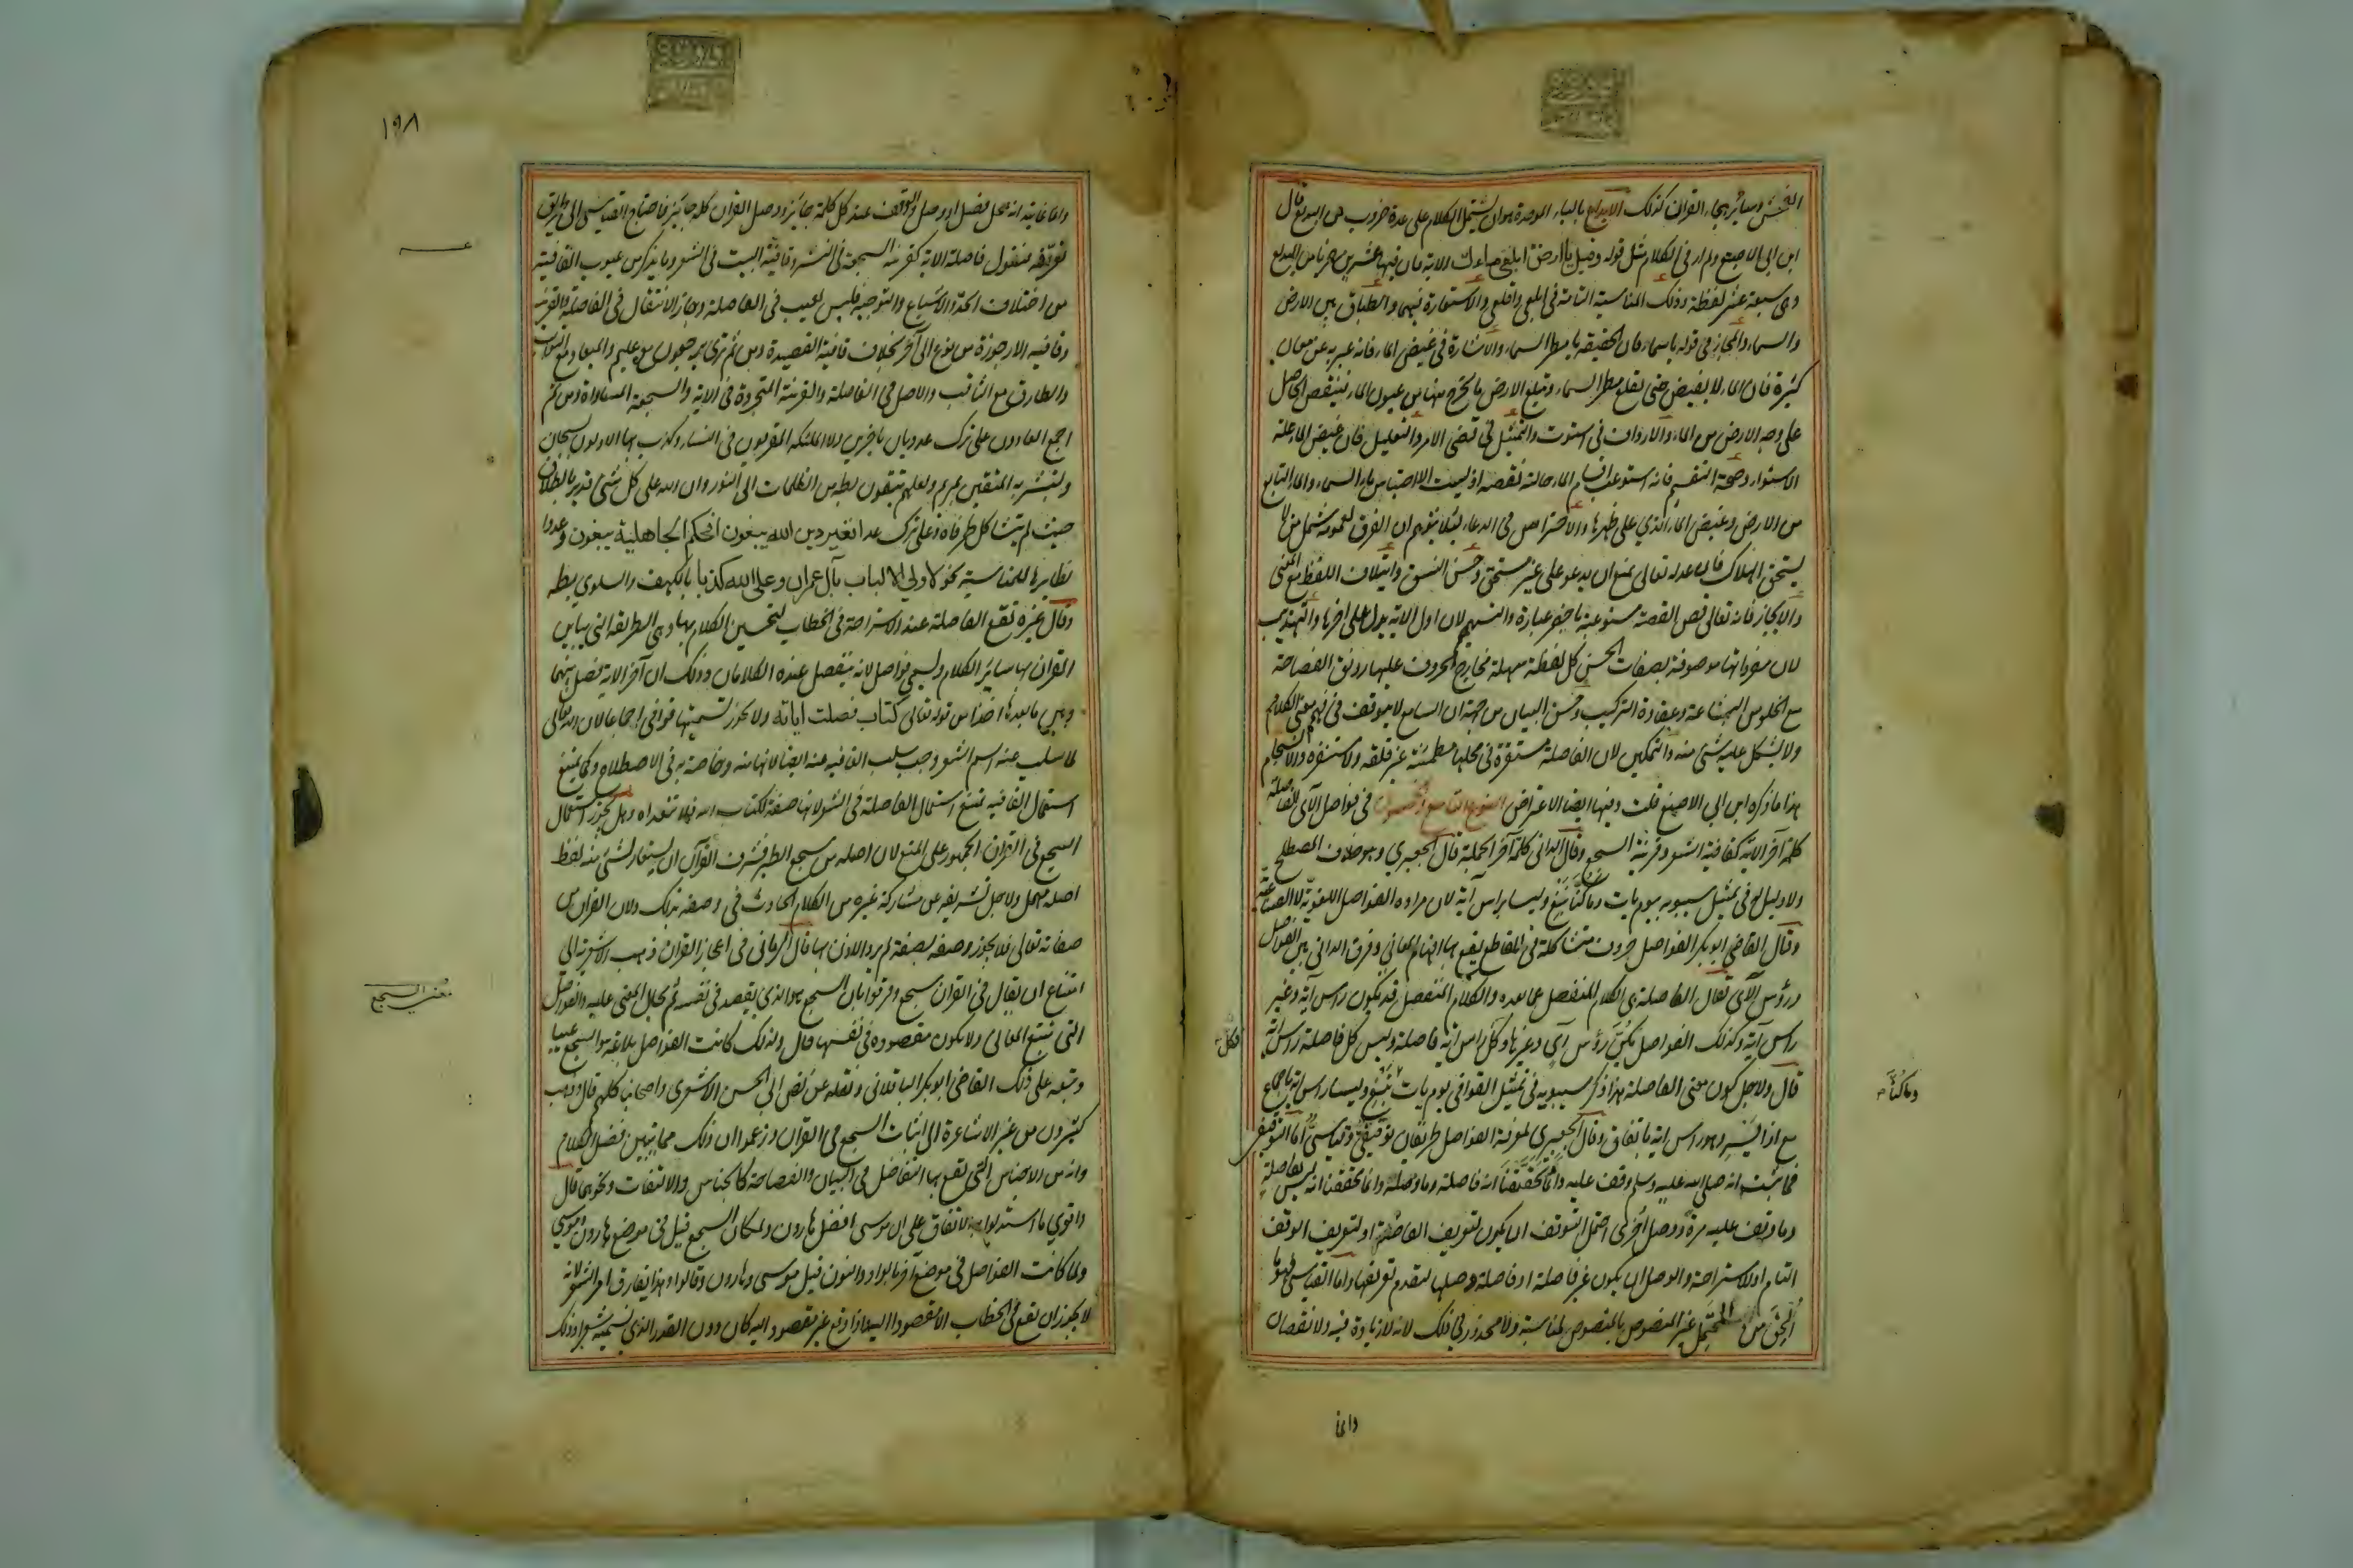 الفحش وسائر هجاء القرآن كذلك الابداع بالباء الموحدة هو ان يشتمل الكلام على عدة ضروب من البديع قال
ابن ابي الاصبع ولم ار في الكلام مثل قوله وقيل يا ارض ابلعي ماءك الآية فان فيها عشرين ضربا من البديع
وهى سبعة عشر لفظة وذلك المناسبة التامة في ابلعي واقلعي والاستعارة فيهما والطباق بين الارض
والسماء والمجاز في قوله يا سماء فان الحقيقة يا مطر السماء والاشارة في غيض الماء فانه عبر به عن معان
كثيرة فان الماء لا يغيض حتى يقلع مطر السماء وتبلع الارض ما يخرج منها من عيون الماء فينقص الحاصل
على وجه الارض من الماء والارداف في استوت والتمثيل في قضى الامر والتعليل فان غيض الماء علة
الاستواء وصحة التقسيم فانه استوعب اقسام الماء حالة نقصه اذ ليست الا احتباس ماء السماء والماء النابع
من الارض وغيض الماء الذي على ظهرها والاحتراس في الدعاء لئلا يتوهم ان الغرق لعمومه شمل من لا
يستحق الهلاك فان عدله تعالى يمنع ان يدعو على غير مستحق وحسن النسق وايتلاف اللفظ مع المعنى
والايجاز فانه تعالى قص القصة مستوعبة باخصر عبارة والتسهيم لان اول الآية يدل على اخرها والتهذيب
لان مفرداتها موصوفة بصفات الحسن كل لفظة سهلة مخارج الحروف عليها رونق الفصاحة
مع الخلو من البشاعة وعقادة التركيب وحسن البيان من جهة ان السامع لا يتوقف في فهم معنى الكلام
ولا يشكل عليه شئ منه والتمكين لان الفاصلة مستقرة في محلها مطمئنة غير قلقة ولا مستنفرة والانسجام
هذا ما ذكره ابن ابي الاصبع قلت وفيها ايضا الاعتراض النوع التاسع والخمسون في فواصل الآى الفاصلة
كلمة آخر الآية كقافية الشعر وقرينة السجع وقال الدانى كلمة آخر الجملة قال الجعبري وهو خلاف المصطلح
ولا دليل له في تمثيل سيبويه بيوم يات وما كنا نبغ وليسا براس آية لان مراده الفواصل اللغوية لا الصناعية
وقال القاضي ابو بكر الفواصل حروف متشاكلة في المقاطع يقع بها افهام المعاني وفرق الدانى بين الفواصل
ورؤس الآى فقال الفاصلة هى الكلام المنفصل عما بعده والكلام المنفصل قد يكون راس آية وغير
راس آية وكذلك الفواصل يكن رؤس آي وغيرها وكل راس آية فاصلة وليس كل فاصلة راس آية
قال ولاجل كون معنى الفاصلة هذا ذكر سيبويه في تمثيل القوافي يوم يات نبغ وليسا راس آية باجماع
وما كنا
مع اذا يسر وهو راس آية باتفاق وقال الجعبري لمعرفة الفواصل طريقان توقيفي وقياسي اما التوقيفي
فما ثبت انه صلى الله عليه وسلم وقف عليه دائما تحققنا انه فاصلة وما وصله دائما تحققنا انه ليس بفاصلة
وما وقف عليه مرة ووصل اخرى احتمل التوقف ان يكون لتعريف الفاصلة او لتعريف الوقف
التام او للاستراحة والوصل ان يكون غير فاصلة او فاصلة وصلها لتقدم تعريفها واما القياسى فهو ما
الحق من المحتمل غير المنصوص بالمنصوص لمناسبة ولا محذور في ذلك لانه لا زيادة فيه ولا نقصان
وانما
١٩٨
وانما غايته انه محل فصل او وصل والوقف عند كل كلمة جايز ووصل القرآن كله جايز فاحتاج القياسى الى طريق
تعرفه فنقول فاصلة الآية كقرينة السجعة في النثر وقافية البيت في الشعر وما يذكر من عيوب القافية
من اختلاف الحد والاشباع والتوجيه فليس بعيب في الفاصلة وجاز الانتقال في الفاصلة والقرينة
وقافية الارجوزة من نوع الى آخر بخلاف قافية القصيدة ومن ثم ترى يرجعون مع عليم والميعاد مع الثواب
والطارق مع الثاقب والاصل في الفاصلة والقرينة المتجردة في الآية والسجعة المساواة ومن ثم
اجمع العادون على ترك عد ويات باخرين ولا الملئكة المقربون في النساء وكذب بها الاولون بسبحان
ولتبشر به المتقين بمريم ولعلهم يتقون بطه من الظلمات الى النور وان الله على كل شئ قدير بالطلاق
حيث لم يتشاكل طرفاه وعلى ترك عد افغير دين الله يبغون افحكم الجاهلية يبغون وعدوا
نظايرها للمناسبة نحو لاولي الالباب بآل عمران وعلى الله كذبا بالكهف والسلوى بطه
وقال غيره تقع الفاصلة عند الاستراحة في الخطاب لتحسين الكلام بها وهي الطريقة التى يباين
القرآن بها ساير الكلام وتسمى فواصل لانه ينفصل عنده الكلامان وذلك ان آخر الآية فصل بينها
وبين ما بعدها اخذا من قوله تعالى كتاب فصلت آياته ولا يجوز تسميتها قوافى اجماعا لان الله تعالى
لما سلب عنه اسم الشعر وجب سلب القافية عنه ايضا لانها منه وخاصة به في الاصطلاح وكما يمتنع
استعمال القافية يمتنع استعمال الفاصلة في الشعر لانها صفة لكتاب الله فلا تتعداه وهل يجوز استعمال
السجع في القرآن الجمهور على المنع لان اصله من سجع الطير فشرف القرآن ان يستعار لشئ منه لفظ
اصله مهمل ولاجل تشريفه عن مشاركة غيره من الكلام الحادث في وصفه بذلك ولان القرآن من
صفاته تعالى فلا يجوز وصفه بصفة لم يرد الاذن بها قال الرماني في اعجاز القرآن ذهب الاشعرية الى
امتناع ان يقال في القرآن سجع وفرقوا بان السجع هو الذي يقصد في نفسه ثم يحال المعنى عليه والفواصل
معنى السجع
التى تتبع المعانى ولا يكون مقصودة في نفسها قال ولذلك كانت الفواصل بلاغة والسجع عيبا
وتبعه على ذلك القاضى ابو بكر الباقلانى ونقله عن نص ابي الحسن الاشعرى واصحابنا كلهم قال وذهب
كثيرون من غير الاشاعرة الى اثبات السجع في القرآن وزعموا ان ذلك مما يبين به فضل الكلام
وانه من الاجناس التى يقع بها التفاضل في البيان والفصاحة كالجناس والالتفات ونحوهما قال
واقوى ما استدلوا به الاتفاق على ان موسى افضل من هارون ولمكان السجع قيل في موضع هارون وموسى
ولما كانت الفواصل في موضع آخر بالواو والنون قيل موسى وهارون وقالوا وهذا يفارق امر الشعر لانه
لا يجوز ان يقع في الخطاب الا مقصودا اليه واذا وقع غير مقصود اليه كان دون القدر الذي نسميه شعرا وذلك